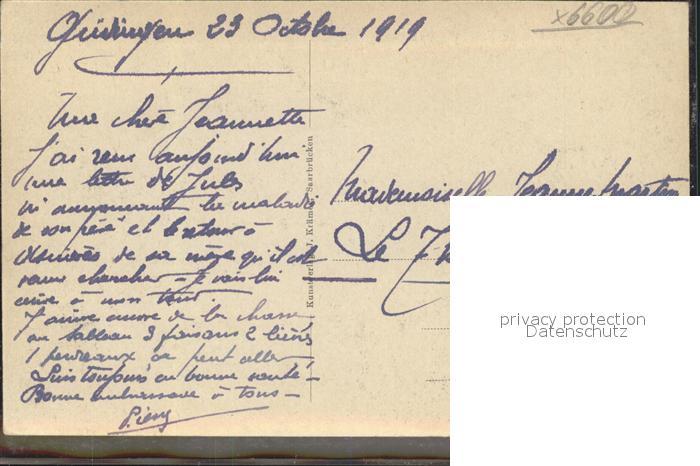 Güdingen 23 Octobre 1919
x6600
Ma chère Jeannette
J'ai reçu aujourd'hui
une lettre de Jules
m'annonçant la maladie
de son père et le retour à
de sa mère qu'il est
venu chercher - Je vais lui
écrire à mon tour.
J'arrive encore de la chasse
au tableau 3 faisans 2 lièvres
1 perdreaux ça peut aller
Suis toujours en bonne santé -
Bonne embrassade à tous -
Pierry
Kunstverlag J. Krämer, Saarbrücken
Mademoiselle Jeanne Martin
Le
privacy protection
Datenschutz